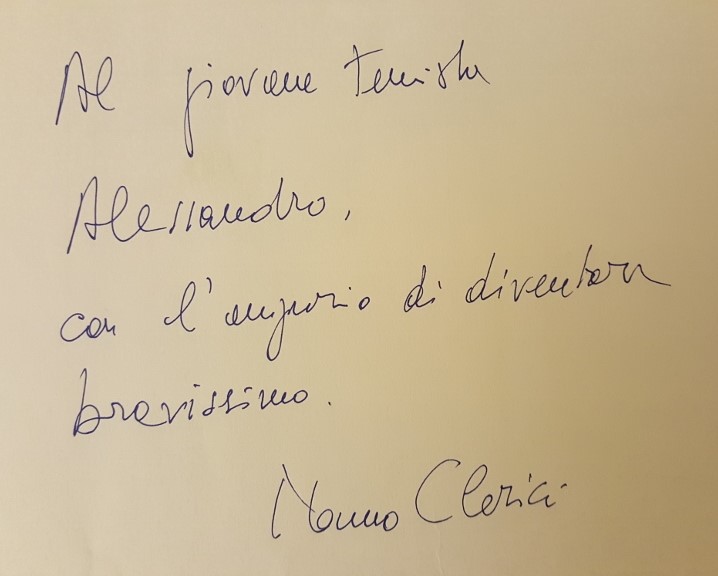 Al giovane tennista
Alessandro,
con l'augurio di diventare
bravissimo.
Nonno Clerici